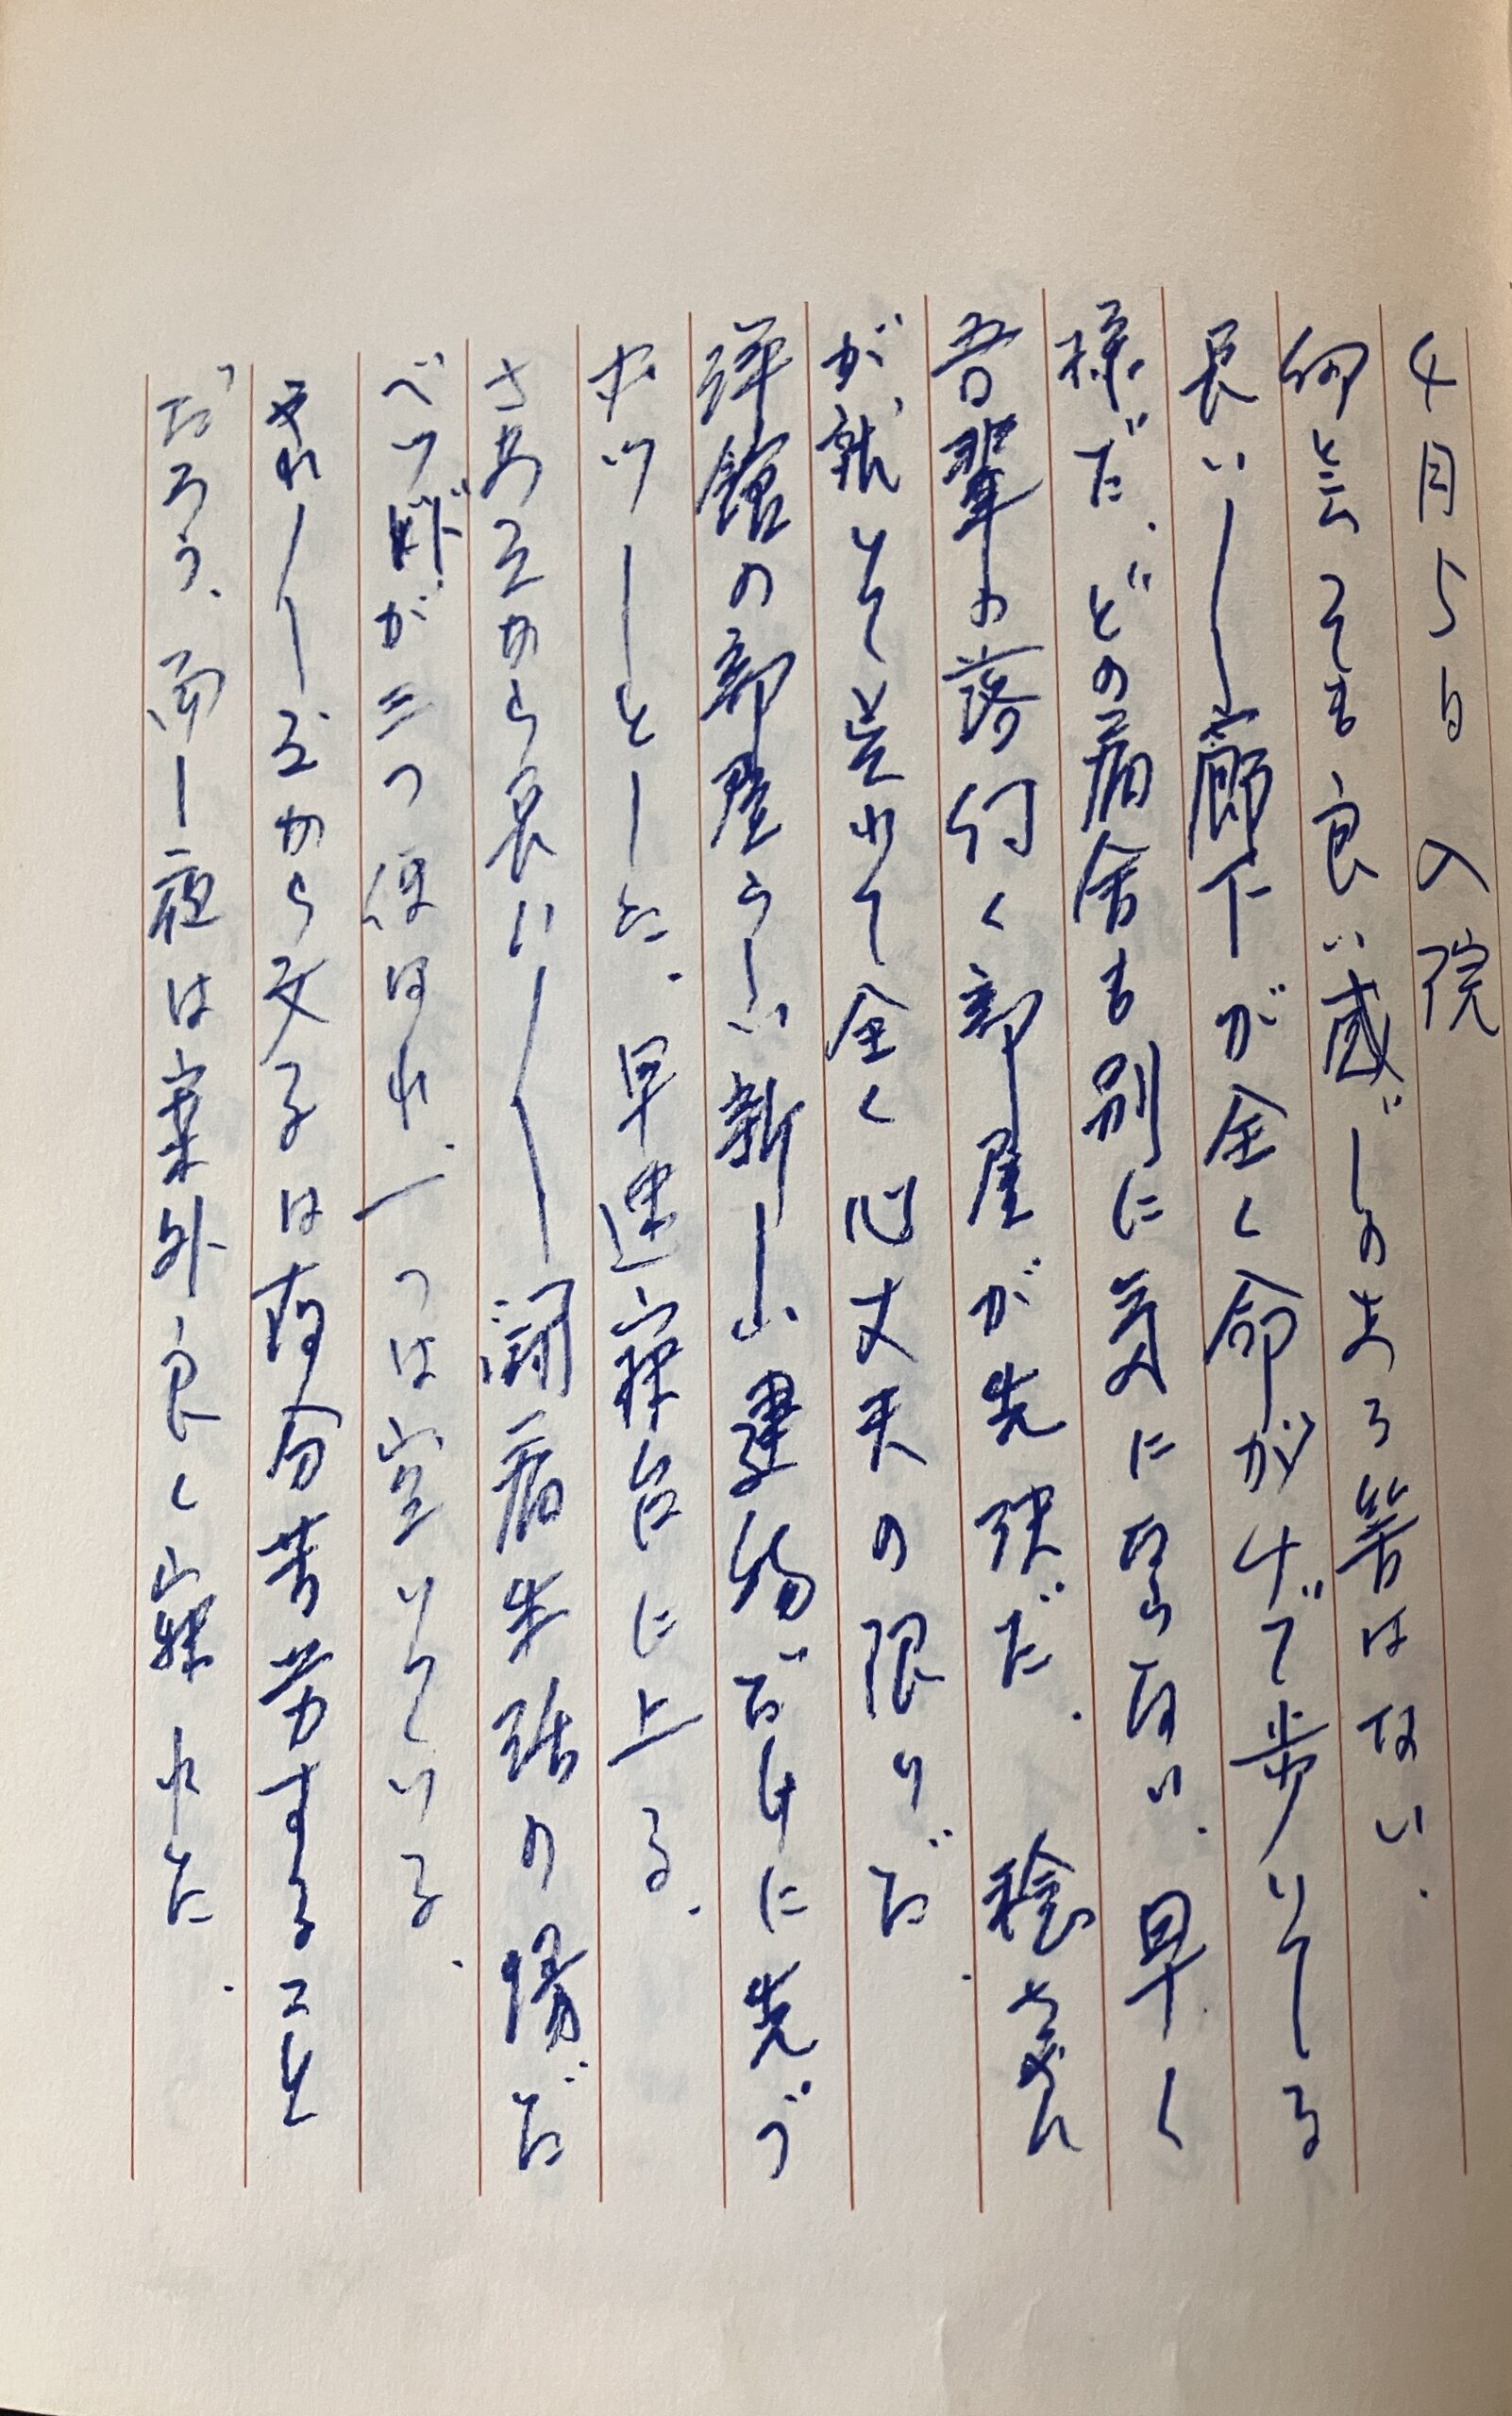 4月5日 入院
何と云っても良い感じの太ろ筈はない.
長い――廊下が全く命がけで歩いてる
様だ.どの病舎も別に気にならない.早く
吾輩の落付く部屋が先決だ. 稔さん
が就いて呉れて全く心丈夫の限りだ.
洋館の部屋らしい新しい建物だけに先づ
ホッ―とした.早速寝台に上る.
さあこれから長い――闘病生活の場だ
ベッドが二つ 一つは空いている.
これから文子は存分苦労すること
だろう.而し夜は案外良く寝れた.